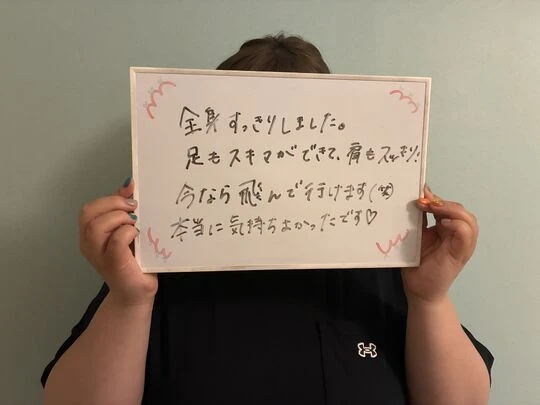 全身すっきりしました。
足もスキマができて、肩もスッキリ!
今なら飛んで行けます(笑)
本当に気持ちよかったです♡